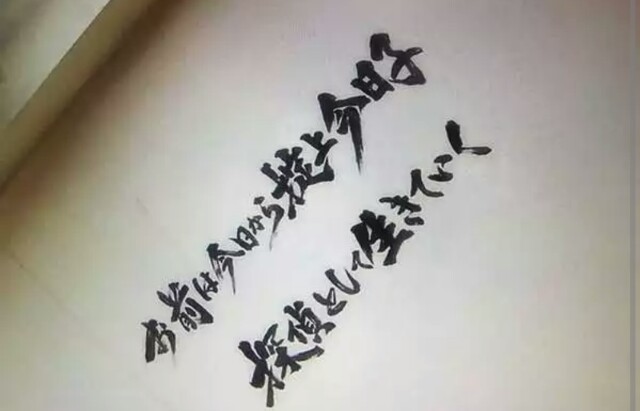 お前は今日から掟上今日子
探偵として生きていく